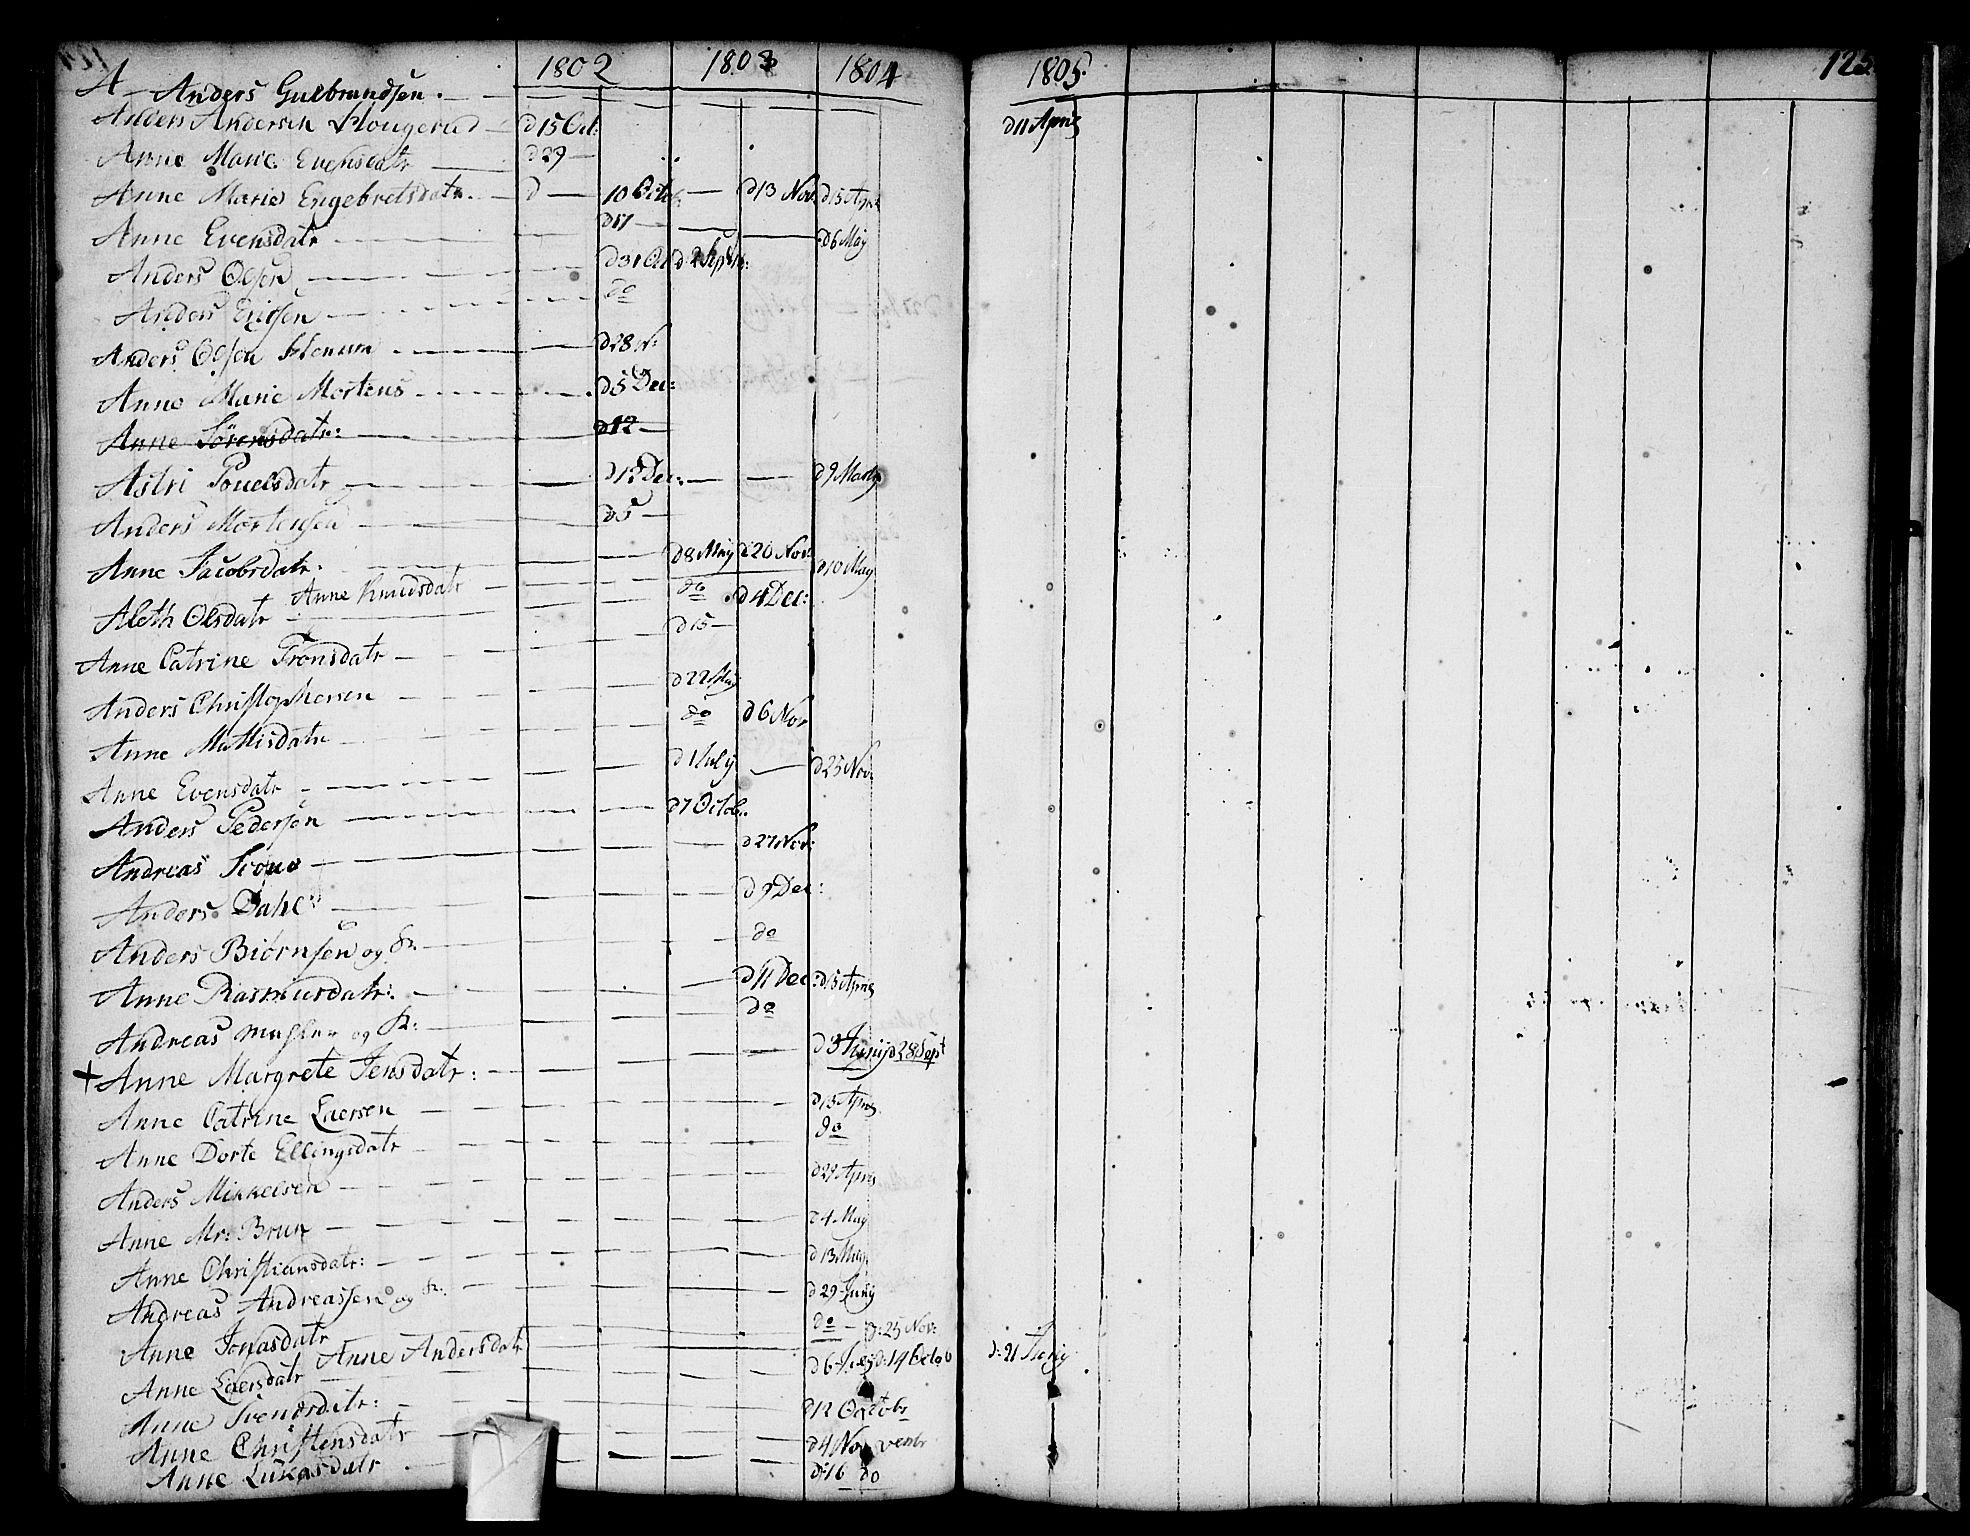 1802 1803 1804 1805 125
A Anders Gulbrandsen
Anders Andersen Hougerud d 15 Oct: d 11 April
Anne Marie Evensdatr d 29
Anne Marie Engebretsdatr d 10 Octob. d 13 Nov: d 15 April
Anne Evensdatr d 17 d 6 May
Anders Olsen d 31 Oct d 2 Septb:
Anders Ericsen do
Anders Olsen d 28 N:
Anne Marie Mortens d 5 Dec:
Anne Sörensdatr: d 12
Astri Pouelsdatr d 12 Dec: d 9 Marty
Anders Mortensen d 5
Anne Jacobsdatr. d 8 May d 20 Nov: d 10 May
Aleth Olsdatr Anne Knudsdatr do d 4 Dec:
Anne Catrine Tronsdatr d 15
Anders Christophersen d 22 May
Anne Mattisdatr do d 6 Nov
Anne Evensdatr d 1 July d 25 Nov:
Anders Pedersen d 7 Octob:
Andreas d 27 Nov:
Anders Dahl d 9 Dec:
Anders Biörnsen og K. do
Anne Rasmusdatr: d 11 Dec: d 15 April
Andreas og K: do
+ Anne Margrete Jensdatr: d 3 Junij d 28 Sept
Anne Catrine Laersen d 15 April
Anne Dorte Ellingsdatr do
Anders Mikkelsen d 27 April
Anne Mr: Brun d 4 May
Anne Christiansdatr: d 13 May
Andreas Andreassen og K. d 29 Juny
Anne Jonasdatr do d: 25 Nov:
Anne Laersdatr Anne Andersdatr d 6 d: 14 Octob d: 21 Juny
Anne Svendsdatr: d 12 Octobr
Anne Christensdatr d 4 Novembr
Anne Lukasdatr d: 16 do